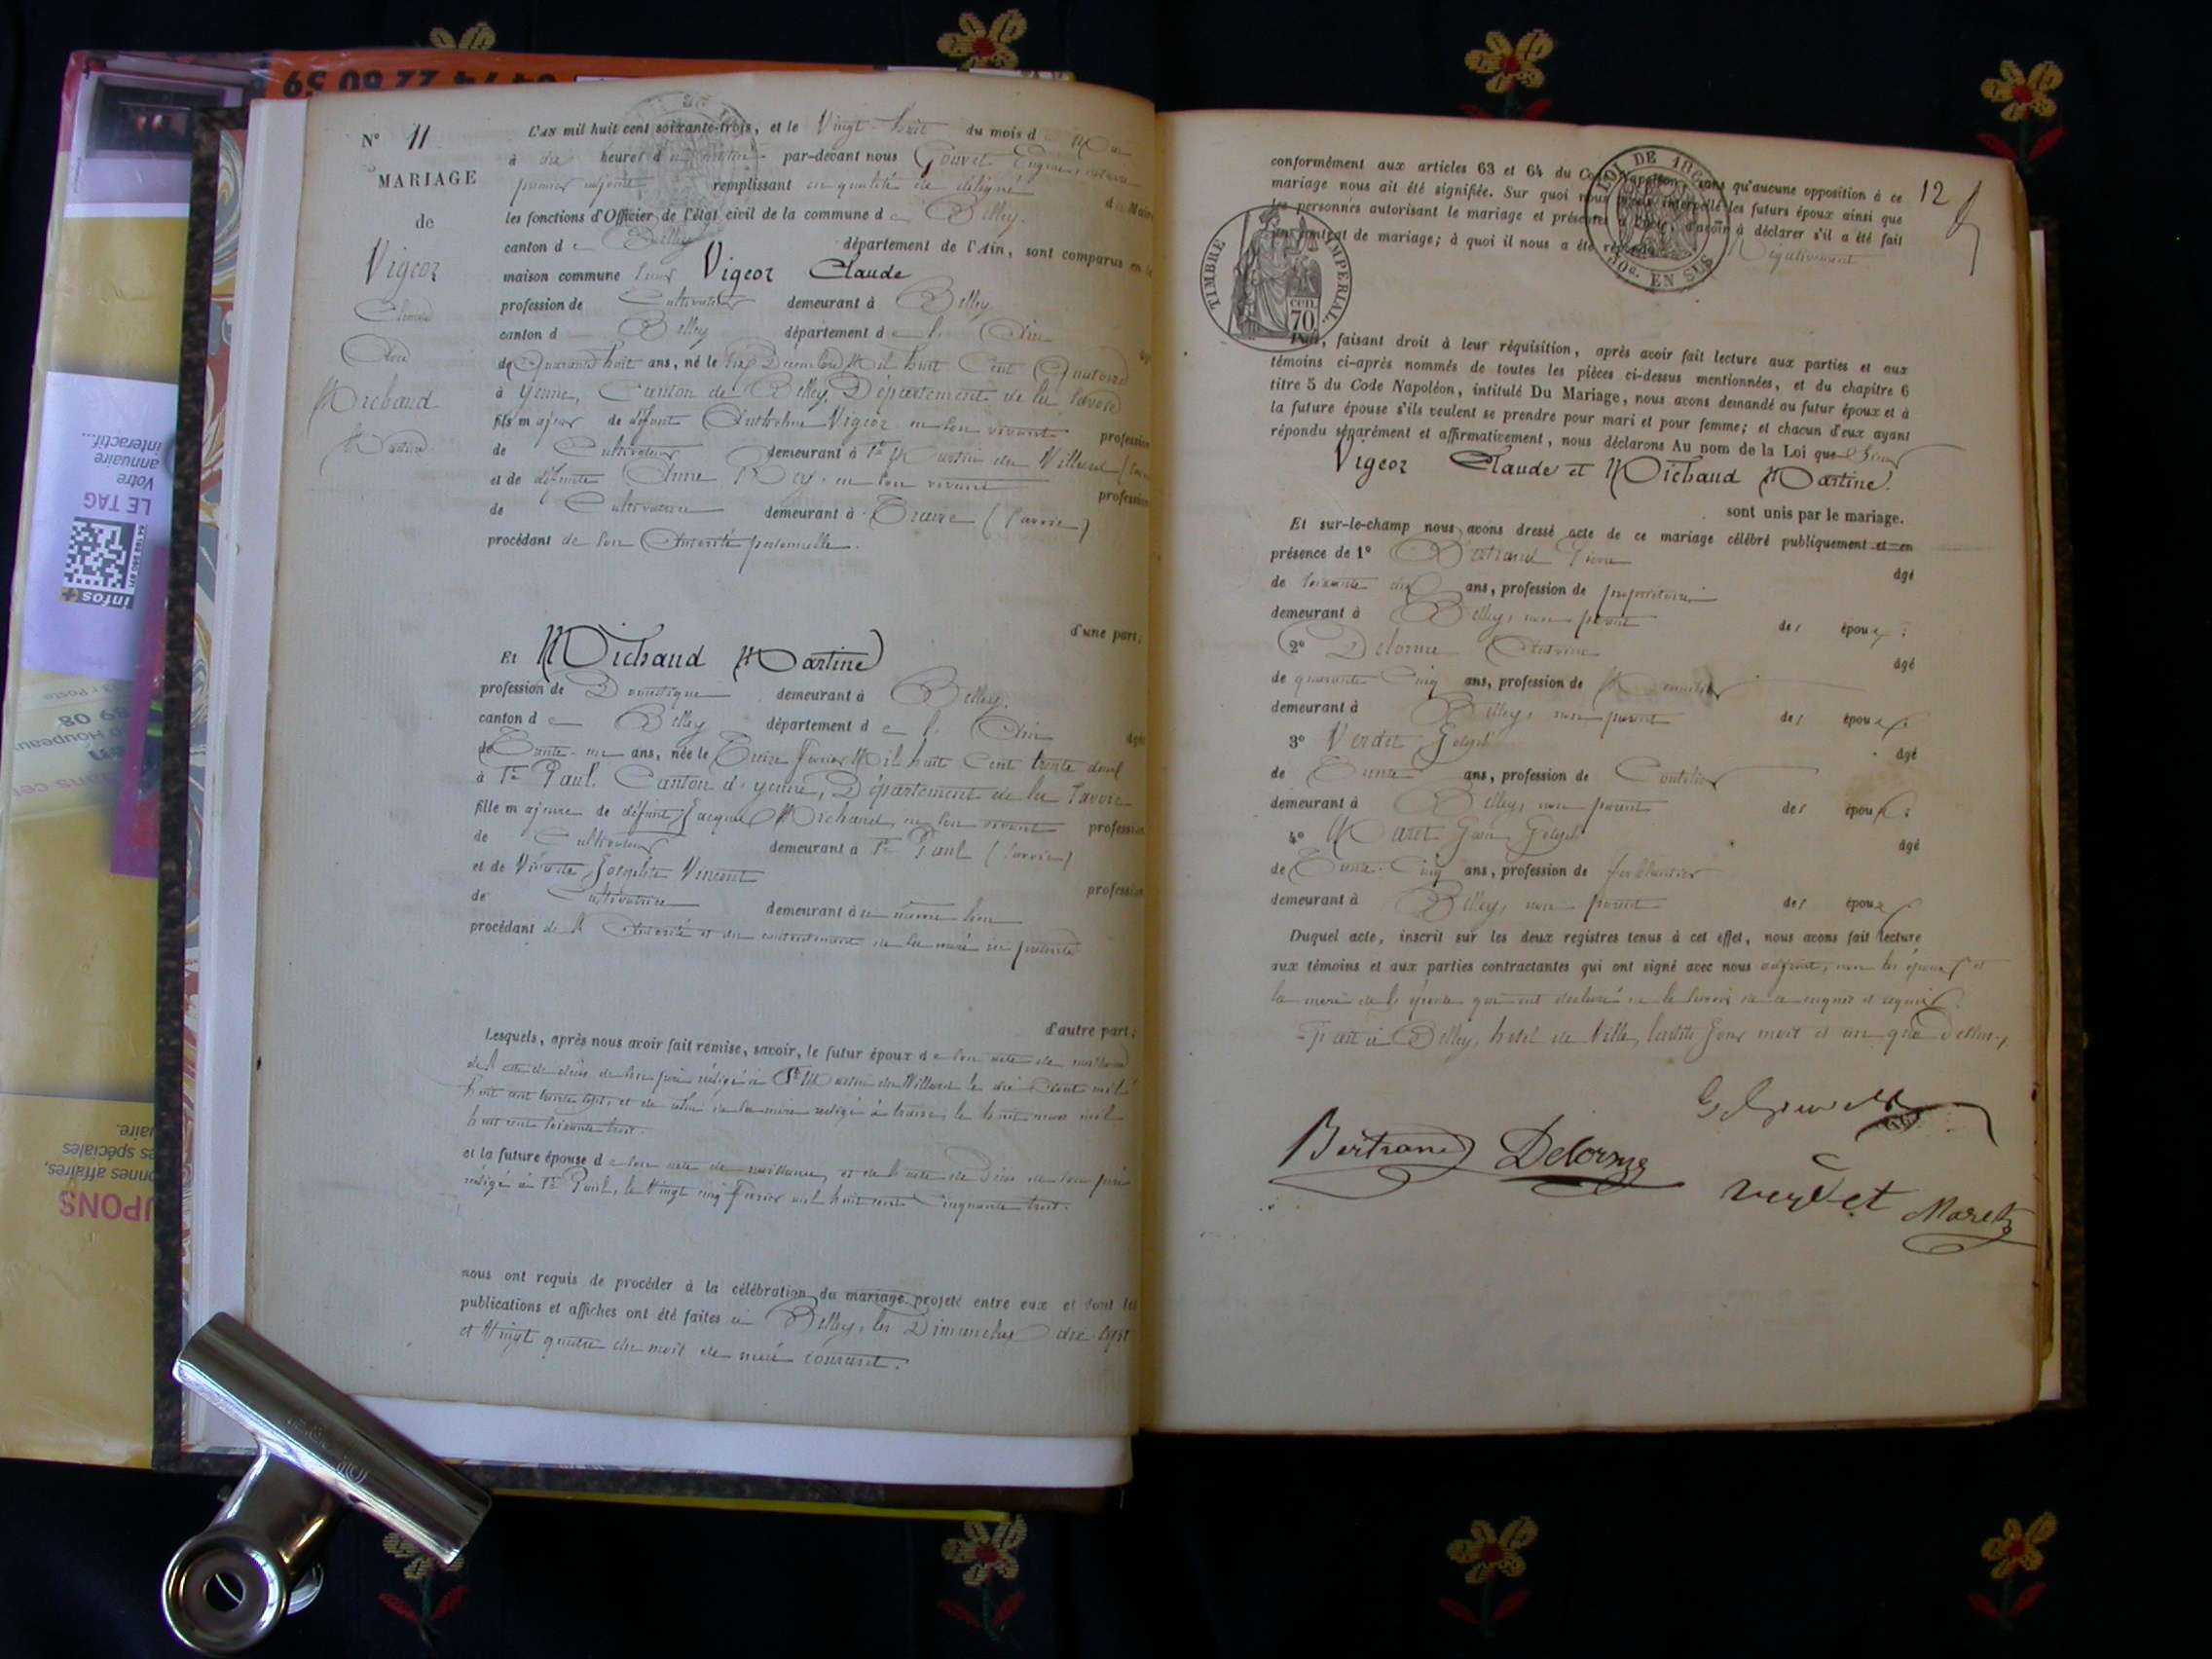 04 74 22 80 59
Votre
annuaire
interactif...
LE TAG
infos+
UPONS
nnes affaires,
es spéciales
uaire.
N° 11
MARIAGE
de
Vigeoz
Claude
Michaud
Martine
L'an mil huit cent soixante-trois, et le Vingt-huit du mois de Mai
à dix heures du matin par-devant nous Eugène, notaire
premier adjoint remplissant en qualité de délégué du Maire
les fonctions d'Officier de l'état civil de la commune de Belley.
canton de Belley département de l'Ain, sont comparus en la
maison commune sieur Vigeoz Claude
profession de Cultivateur demeurant à Belley
canton d Belley département de l'Ain âgé
de Quarante huit ans, né le six Décembre Mil huit Cent Quatorze
à Yenne, Canton de Belley, Département de la Savoie
fils majeur de défunt Anthelme Vigeoz en son vivant profession
de Cultivateur demeurant à St Martin du Villard
et de défunte Anne Rey en son vivant profession
de Cultivatrice demeurant à Traize (Savoie)
procédant de son Autorité personnelle.
d'une part;
Et Michaud Martine
profession de Domestique demeurant à Belley.
canton de Belley département de l'Ain âgée
de Trente-un ans, née le Treize février Mil huit Cent trente deux
à St Paul, Canton d'Yenne, Département de la Savoie
fille majeure de défunt Jacques Michaud, en son vivant profession
de Cultivateur demeurant à St Paul (Savoie)
et de Vivante Josephte Vincent profession
de Cultivatrice demeurant à même lieu
procédant de l'Autorité et du consentement de sa mère ici présente
d'autre part;
Lesquels, après nous avoir fait remise, savoir, le futur époux de son acte de naissance
de l'acte de décès de son père rédigé à St Martin du Villard le dix Août mil
huit cent trente sept, et de celui de sa mère rédigé à traize, le huit mars mil
huit cent soixante trois.
et la future épouse de son acte de naissance, et de l'acte de Décès de son père
rédigé à St Paul, le Vingt cinq février mil huit cent Cinquante trois.
nous ont requis de procéder à la célébration du mariage projeté entre eux et dont les
publications et affiches ont été faites à Belley, les Dimanches dix-sept
et Vingt quatre du mois de mai courant.
12
LOI DE
50c. EN SUS
TIMBRE IMPERIAL
70 cen.
conformément aux articles 63 et 64 du Code Napoléon, sans qu'aucune opposition à ce
mariage nous ait été signifiée. Sur quoi nous avons interpellé les futurs époux ainsi que
les personnes autorisant le mariage et présentes à l'acte, d'avoir à déclarer s'il a été fait
un contrat de mariage; à quoi il nous a été répondu Négativement
Puis, faisant droit à leur réquisition, après avoir fait lecture aux parties et aux
témoins ci-après nommés de toutes les pièces ci-dessus mentionnées, et du chapitre 6
titre 5 du Code Napoléon, intitulé Du Mariage, nous avons demandé au futur époux et à
la future épouse s'ils veulent se prendre pour mari et pour femme; et chacun d'eux ayant
répondu séparément et affirmativement, nous déclarons Au nom de la Loi que Sieur
Vigeoz Claude et Michaud Martine.
sont unis par le mariage.
Et sur-le-champ nous avons dressé acte de ce mariage célébré publiquement et en
présence de 1° Bertrand Pierre âgé
de soixante dix ans, profession de propriétaire
demeurant à Belley, non parent des époux;
2° Delorme Antoine âgé
de quarante Cinq ans, profession de Menuisier
demeurant à Belley, non parent des époux;
3° Verdet Joseph âgé
de Trente ans, profession de Coutelier
demeurant à Belley, non parent des époux;
4° Maret Jean Joseph âgé
de Trente-Cinq ans, profession de ferblantier
demeurant à Belley, non parent des époux
Duquel acte, inscrit sur les deux registres tenus à cet effet, nous avons fait lecture
aux témoins et aux parties contractantes qui ont signé avec nous adjoint, non les époux et
la mère de l'épouse qui ont déclaré ne le savoir de ce enquis et requis.
Fait à Belley, hotel de Ville, lesdits Jour mois et an que Dessus,
Bertrand Delorme
verdet Maret